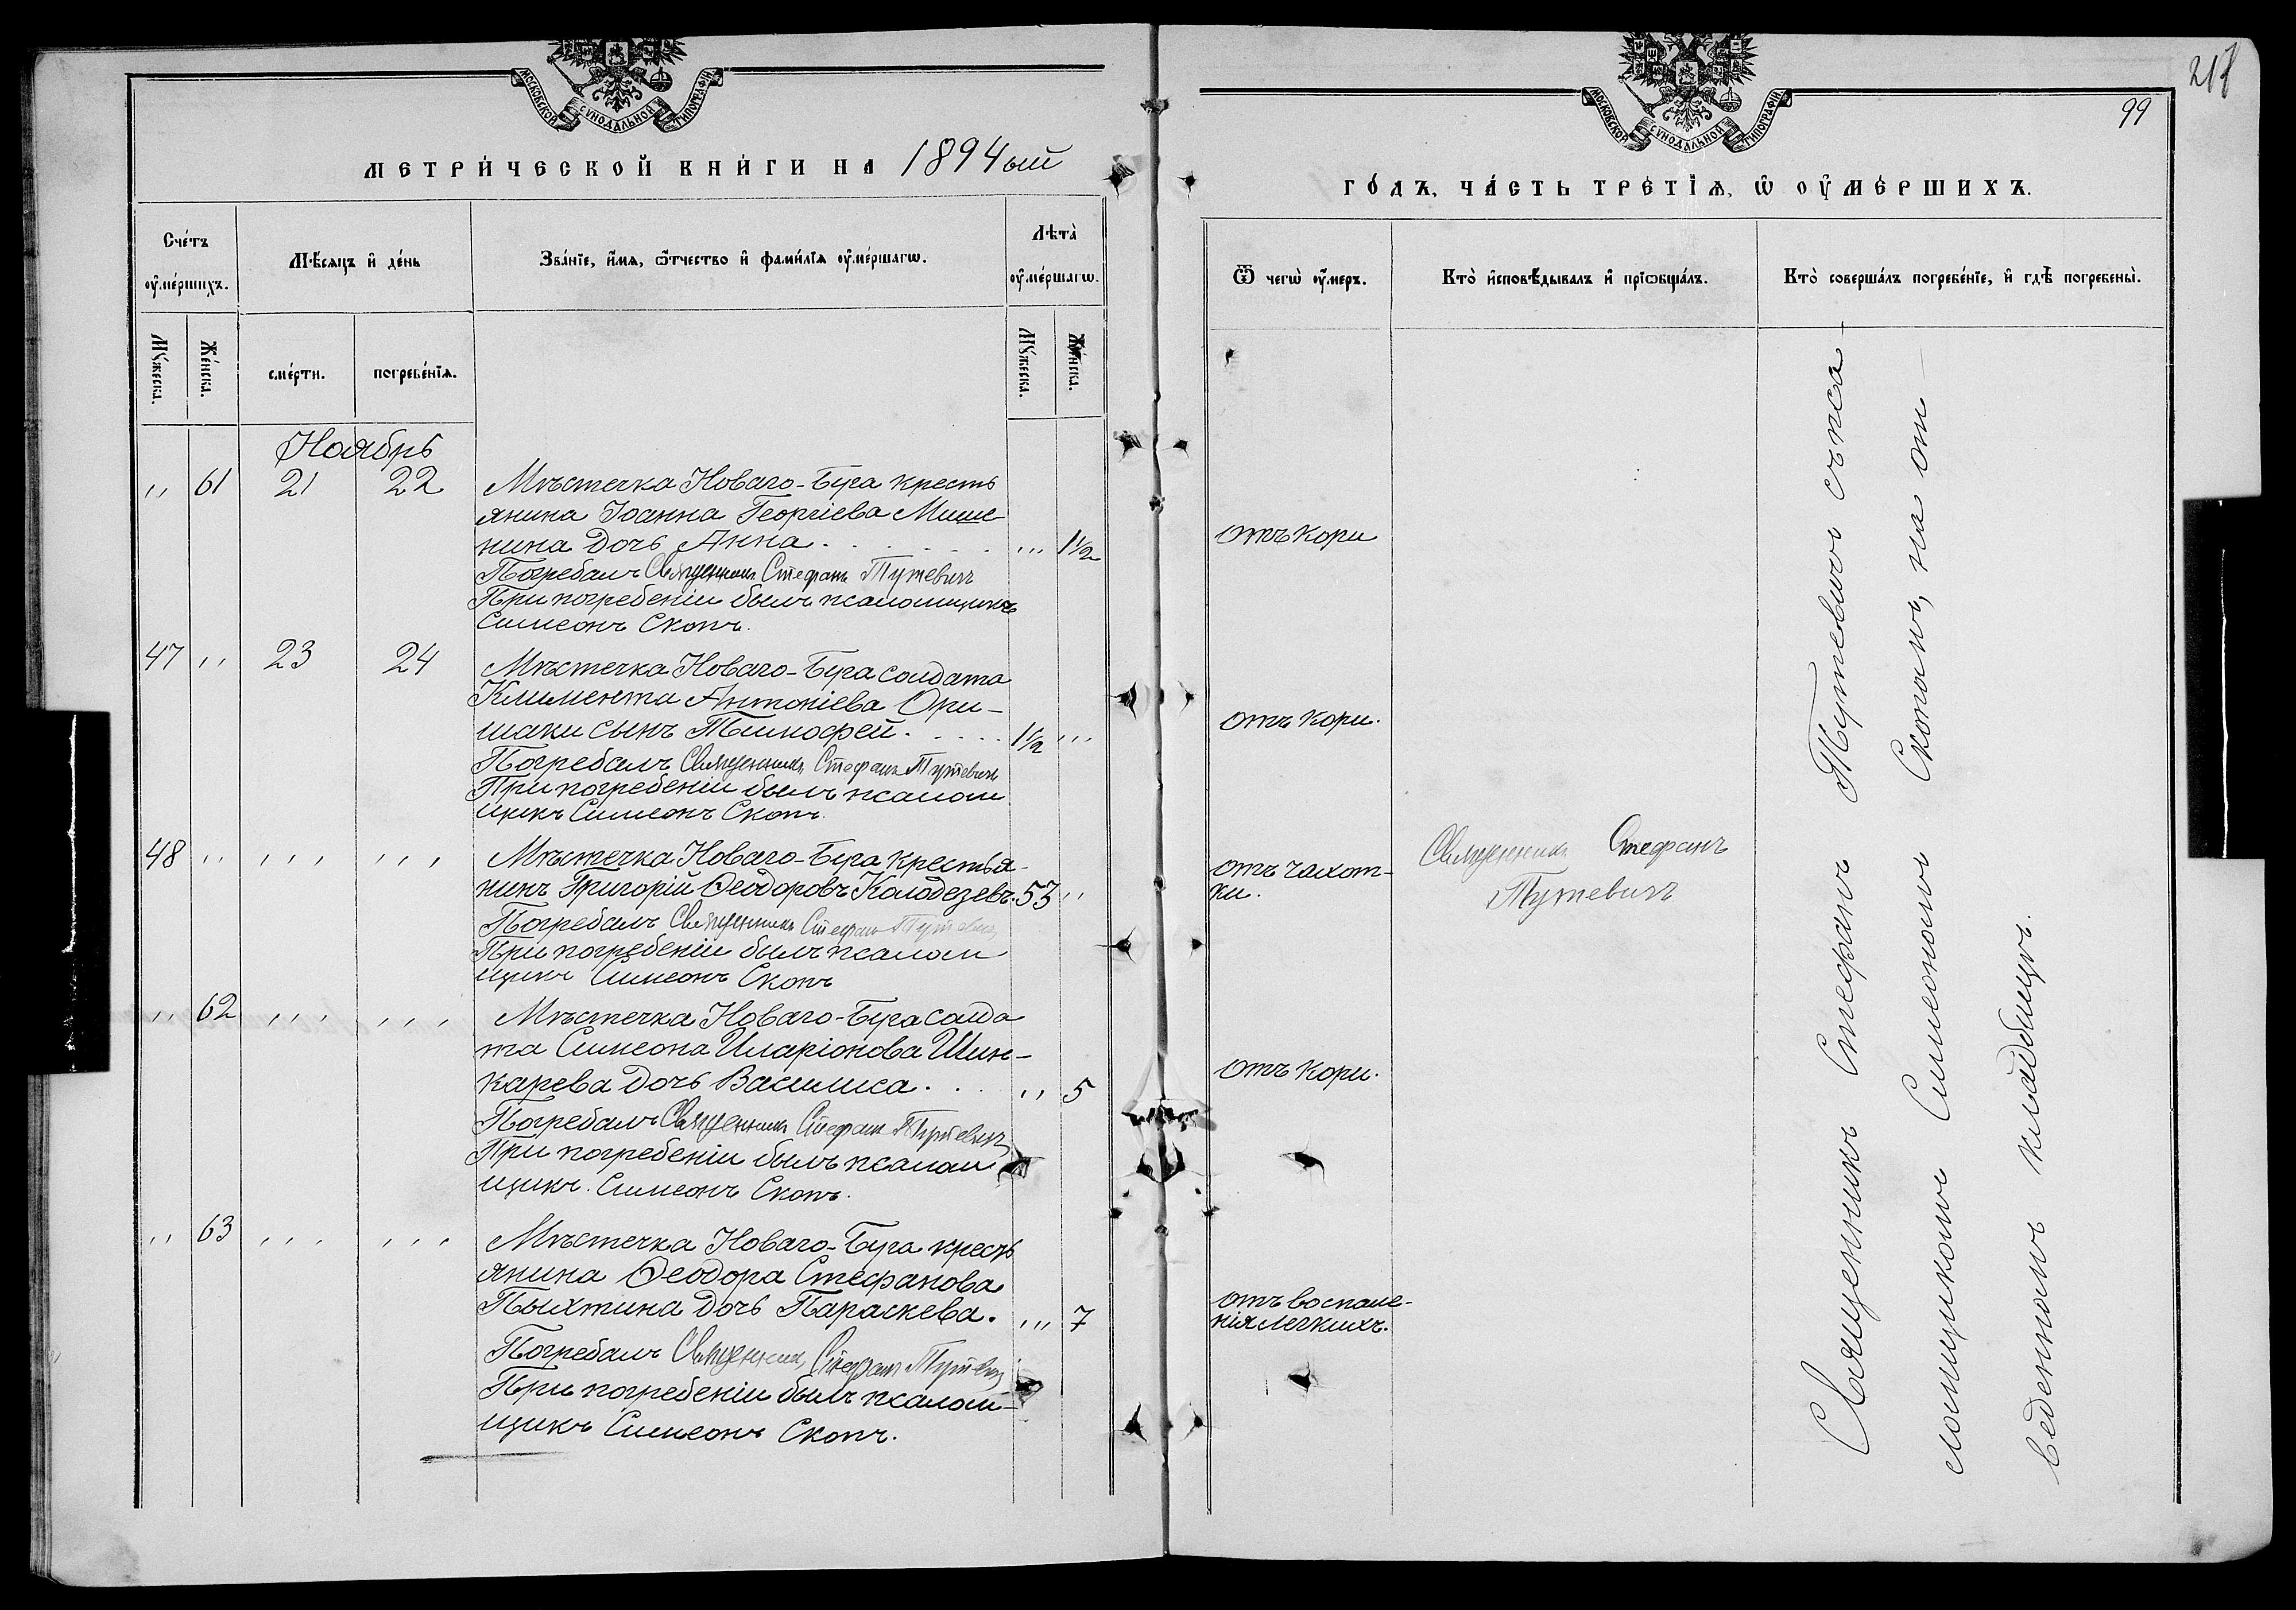 МОСКОВСКОЙ СУНОДАЛЬНОЙ ТИПОГРАФИИ
МЕТРИ́ЧЕСКОЙ КНИ́ГИ НА 1894ый
Сче́тъ ᲂу҆ме́ршихъ.
Мѣ́сяцъ и҆ де́нь
Зва́нїе, и҆́мя, ѻ҆́тчество и҆ фами́лїя ᲂу҆ме́ршагѡ.
Лѣта̀ ᲂу҆ме́ршагѡ.
Мꙋ́жеска.
Же́нска.
сме́рти.
погребе́нїя.
Мꙋ́жеска.
Же́нска.
Ноябрь
„ 61 21 22 Мѣстечка Новаго-Буга кресть
янина Іоанна Георгіева Мише
нина дочь Анна . . . . . . . „ 1½
Погребалъ Священникъ Стефанъ Тутевичъ
При погребеніи былъ псаломщикъ
Симеонъ Скопъ.
47 „ 23 24 Мѣстечка Новаго-Буга солдата
Климента Антоніева Ори-
шаки сынъ Тимофей . . . . . 1½ „
Погребалъ Священникъ Стефанъ Тутевичъ
При погребеніи былъ псалом
щикъ Симеонъ Скопъ.
48 „ „ „ Мѣстечка Новаго-Буга крестья-
нинъ Григорій Ѳеодоровъ Колодезевъ. 53 „
Погребалъ Священникъ Стефанъ Тутевичъ
При погребеніи былъ псалом
щикъ Симеонъ Скопъ
„ 62 „ „ Мѣстечка Новаго-Буга солда
та Симеона Иларіонова Шин-
карева дочь Василиса . . . „ 5
Погребалъ Священникъ Стефанъ Тутевичъ
При погребеніи былъ псалом
щикъ. Симеонъ Скопъ.
„ 63 „ „ Мѣстечка Новаго-Буга кресть
янина Ѳеодора Стефанова
Пыхтина дочь Параскева. „ 7
Погребалъ Священникъ Стефанъ Тутевичъ
При погребеніи былъ псалом-
щикъ Симеонъ Скопъ.
99
МОСКОВСКОЙ СУНОДАЛЬНОЙ ТИПОГРАФИИ
ГО́ДЪ, ЧА́СТЬ ТРЕ́ТЇЯ, Ѡ҆ ОУ҆МЕ́РШИХЪ.
Ѿ чегѡ̀ ᲂу҆́меръ.
Кто̀ и҆сповѣ́дывалъ и҆ прїѡбща́лъ.
Кто̀ соверша́лъ погребе́нїе, и҆ гдѣ̀ погребены̀.
отъ кори
отъ кори.
отъ чахот-
ки.
отъ кори.
отъ воспале-
нія легкихъ.
Священникъ Стефанъ
Тутевичъ
Священникъ Стефанъ Тутевичъ съ пса-
ломщикомъ Симеономъ Скопомъ, на от-
веденномъ кладбищѣ.